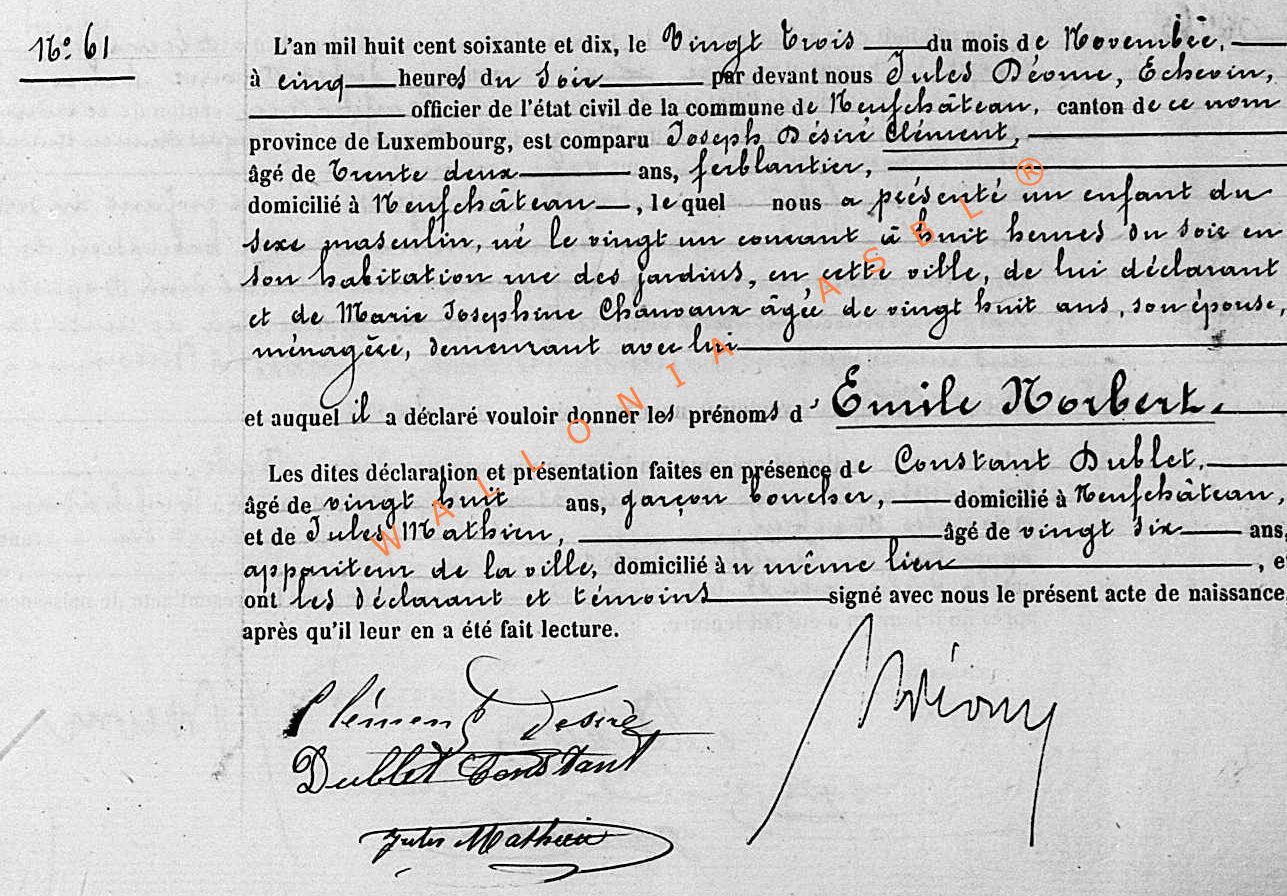 N° 61
L'an mil huit cent soixante et dix, le Vingt trois du mois de Novembre,
à cinq heures du soir par devant nous Jules Déome, Echevin,
officier de l'état civil de la commune de Neufchâteau, canton de ce nom
province de Luxembourg, est comparu Joseph Désiré Clément,
âgé de trente deux ans, ferblantier,
domicilié à Neufchâteau, le quel nous a présenté un enfant du
sexe masculin, né le vingt un courant à huit heures du soir en
son habitation rue des jardins, en cette ville, de lui déclarant
et de Marie Josephine Chauvaux âgée de vingt huit ans, son épouse,
ménagère, demeurant avec lui
et auquel il a déclaré vouloir donner les prénoms d'Emile Norbert.
Les dites déclaration et présentation faites en présence de Constant Dublet,
âgé de vingt huit ans, garçon boucher, domicilié à Neufchâteau,
et de Jules Mathieu, âgé de vingt six ans,
appariteur de la ville, domicilié au même lieu, e
ont les déclarant et témoins signé avec nous le présent acte de naissance
après qu'il leur en a été fait lecture.
Clément Desiré
Dublet Constant
Jules Mathieu
WALLONIA ASBL ®